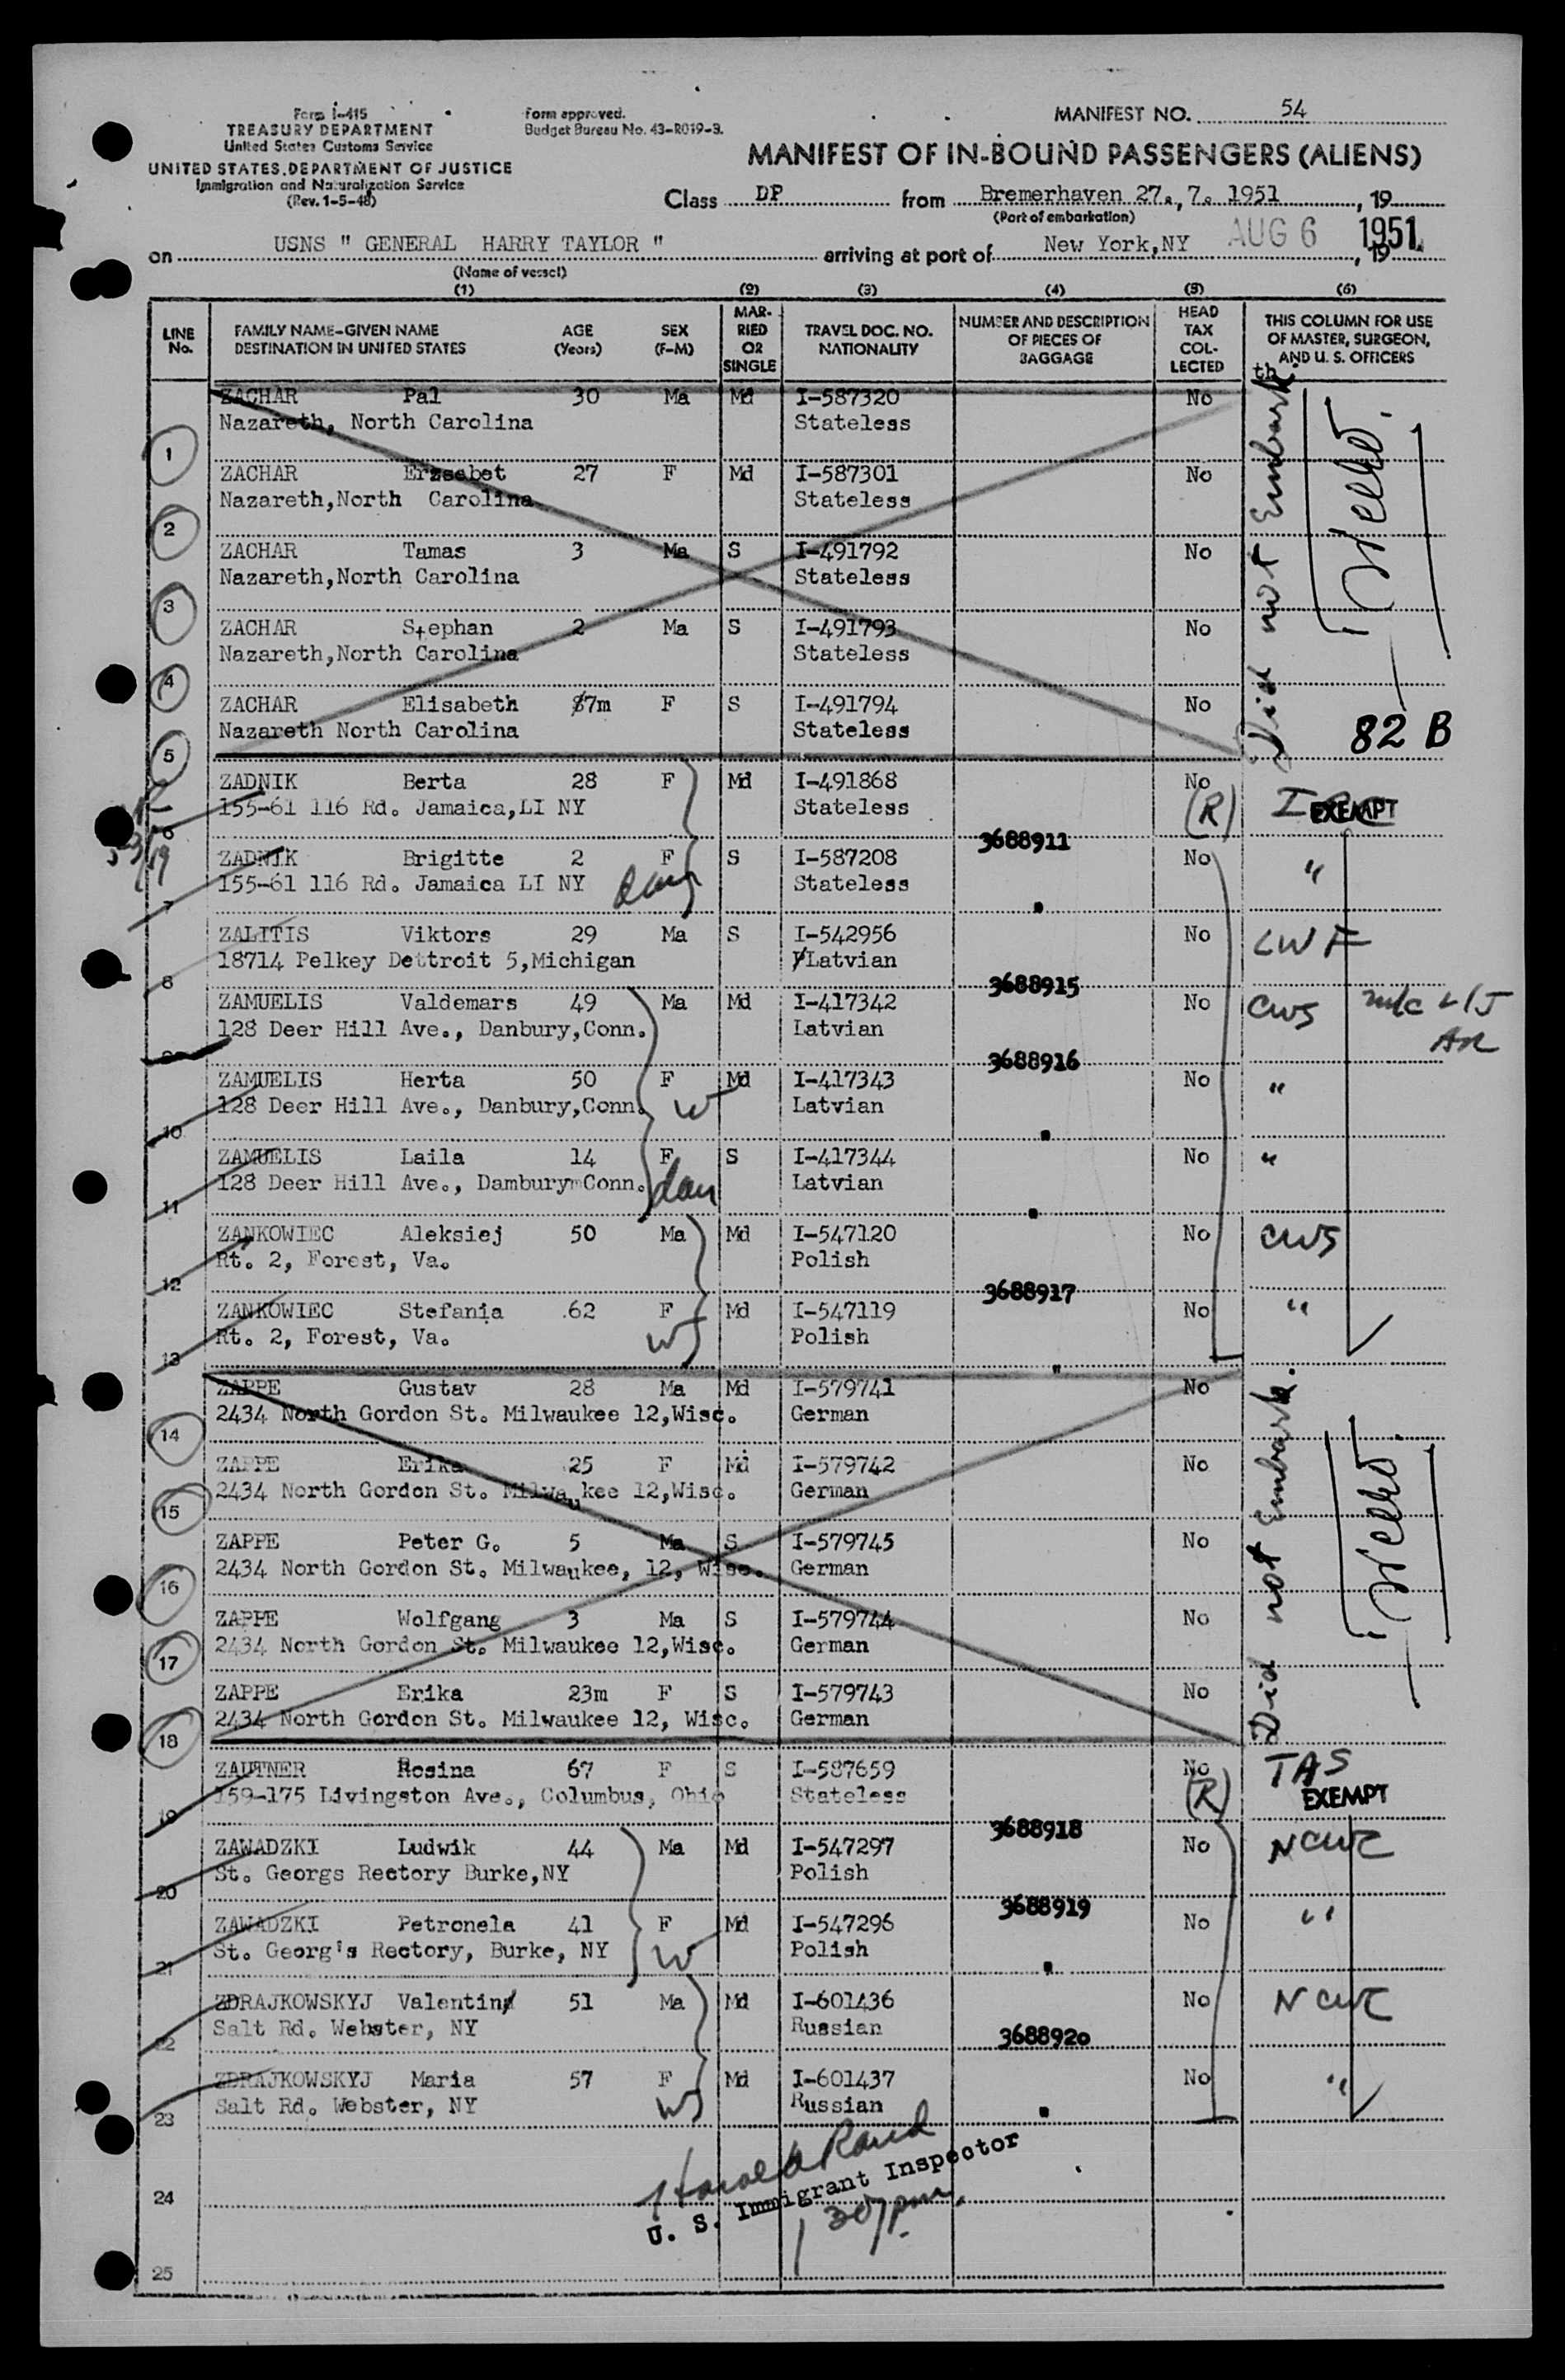 Form I-415
TREASURY DEPARTMENT
United States Customs Service
UNITED STATES DEPARTMENT OF JUSTICE
Immigration and Naturalization Service
(Rev. 1-5-48)
Form approved.
Budget Bureau No. 43-R019-3.
MANIFEST NO. 54
MANIFEST OF IN-BOUND PASSENGERS (ALIENS)
Class DP from Bremerhaven 27., 7. 1951, 19
(Port of embarkation)
on USNS " GENERAL HARRY TAYLOR " arriving at port of New York,NY AUG 6 1951, 19
(Name of vessel)
(1) (2) (3) (4) (5) (6)
LINE No. FAMILY NAME-GIVEN NAME DESTINATION IN UNITED STATES AGE (Years) SEX (F-M) MARRIED OR SINGLE TRAVEL DOC. NO. NATIONALITY NUMBER AND DESCRIPTION OF PIECES OF BAGGAGE HEAD TAX COLLECTED THIS COLUMN FOR USE OF MASTER, SURGEON, AND U. S. OFFICERS
ZACHAR Pal 30 Ma Md I-587320 No
Nazareth, North Carolina Stateless
1
ZACHAR Erzsebet 27 F Md I-587301 No
Nazareth,North Carolina Stateless
2
ZACHAR Tamas 3 Ma S I-491792 No
Nazareth,North Carolina Stateless
3
ZACHAR Stephan 2 Ma S I-491793 No
Nazareth,North Carolina Stateless
4
ZACHAR Elisabeth 87m F S I-491794 No
Nazareth North Carolina Stateless
5
Did not Embark.
82 B
ZADNIK Berta 28 F Md I-491868 No
155-61 116 Rd. Jamaica,LI NY Stateless (R) EXEMPT
6 3688911
ZADNIK Brigitte 2 F S I-587208 No "
155-61 116 Rd. Jamaica LI NY dau Stateless
7 "
ZALITIS Viktors 29 Ma S I-542956 No LWF
18714 Pelkey Dettroit 5,Michigan Latvian
8 3688915
ZAMUELIS Valdemars 49 Ma Md I-417342 No CWS
128 Deer Hill Ave., Danbury,Conn. Latvian
9 3688916
ZAMUELIS Herta 50 F Md I-417343 No "
128 Deer Hill Ave., Danbury,Conn. W Latvian
10 "
ZAMUELIS Laila 14 F S I-417344 No "
128 Deer Hill Ave., DamburymConn. dau Latvian
11 "
ZANKOWIEC Aleksiej 50 Ma Md I-547120 No CWS
Rt. 2, Forest, Va. Polish
12 3688917
ZANKOWIEC Stefania 62 F Md I-547119 No "
Rt. 2, Forest, Va. W Polish
13 "
ZAPPE Gustav 28 Ma Md I-579741 No
2434 North Gordon St. Milwaukee 12,Wisc. German
14
ZAPPE Erika 25 F Md I-579742 No
2434 North Gordon St. Milwaukee 12,Wisc. German
15
ZAPPE Peter G. 5 Ma S I-579745 No
2434 North Gordon St. Milwaukee, 12, Wisc. German
16
ZAPPE Wolfgang 3 Ma S I-579744 No
2434 North Gordon St. Milwaukee 12,Wisc. German
17
ZAPPE Erika 23m F S I-579743 No
2434 North Gordon St. Milwaukee 12, Wisc. German
18
Did not Embark.
ZAUTNER Rosina 67 F S I-587659 No TAS
159-175 Livingston Ave., Columbus, Ohio Stateless (R) EXEMPT
19 3688918
ZAWADZKI Ludwik 44 Ma Md I-547297 No NCWC
St. Georgs Rectory Burke,NY Polish
20 3688919
ZAWADZKI Petronela 41 F Md I-547296 No "
St. Georg's Rectory, Burke, NY W Polish
21 "
ZDRAJKOWSKYJ Valentin 51 Ma Md I-601436 No NCWC
Salt Rd. Webster, NY Russian
22 3688920
ZDRAJKOWSKYJ Maria 57 F Md I-601437 No "
Salt Rd. Webster, NY W Russian
23 "
Harold Rand
U. S. Immigrant Inspector
24
25